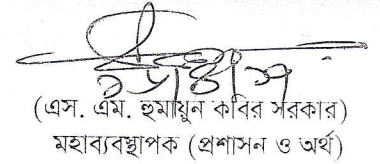 (এস. এম. হুমায়ুন কবির সরকার)
মহাব্যবস্থাপক (প্রশাসন ও অর্থ)